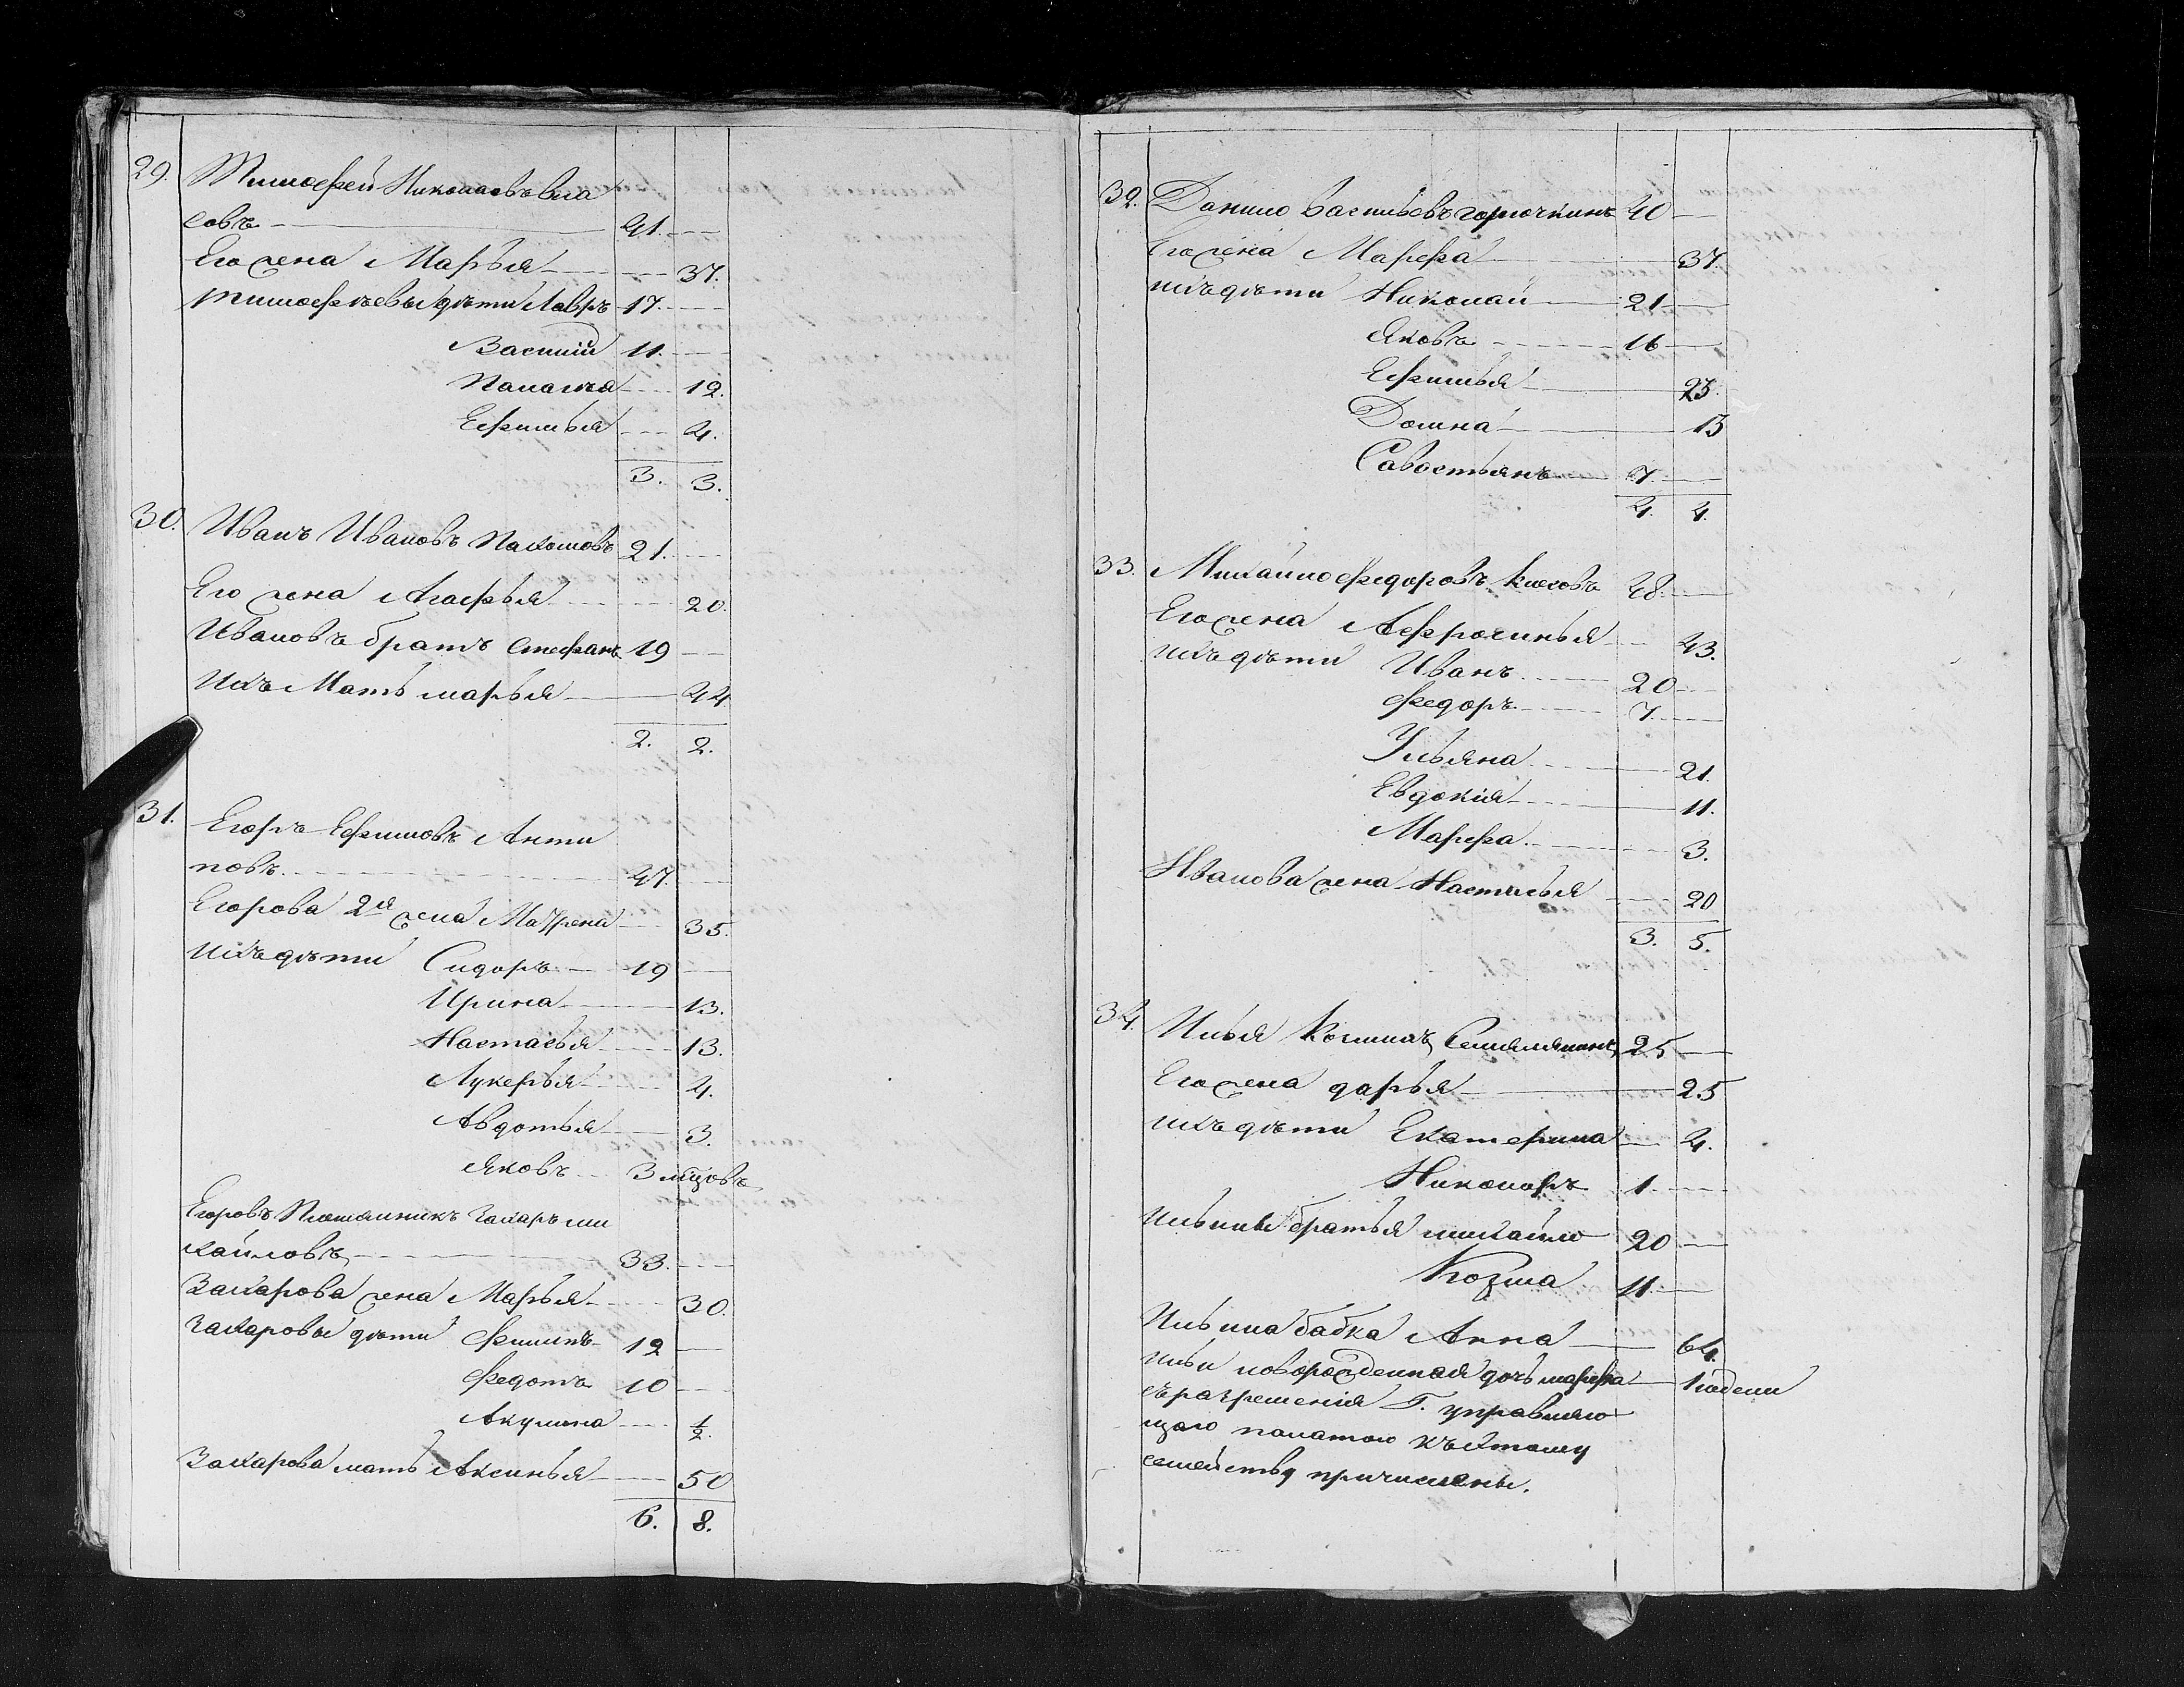 29. Тимофей Николаевъ Вла
совъ 41.
Его жена Марья 37.
тимофѣевы дѣти Лавръ 17.
Василій 11.
Палагѣа 12.
Ефимья 4.
3. 3.
30. Иванъ Ивановъ Пахомовъ 21.
Его жена Агафья 20.
Ивановъ братъ Стефанъ 19
Ихъ Мать марья 44
2. 2.
31. Егоръ Ефимовъ Анти
повъ 47.
Егорова 2я жена Матрена 35.
ихъ дѣти Сидоръ 19
Ирина 13.
Настасья 13.
Лукерья 4.
Авдотья 3.
Яковъ 3 мѣцовъ
Егоровъ Племянникъ Захаръ ми
хайловъ 33.
Захарова жена Марья 30.
Захаровы дѣти Филипъ 12
Федотъ 10
Акулина 1/2.
Захарова мать Аксинья 50
6. 8.
32. Данило Васильевъ горючкинъ 40
Его жена Марфа 37.
ихъ дѣти Николай 21
Яковъ 16
Ефимья 23.
Домна 13
Савостьянъ 7.
4. 4.
33. Михайло Федоровъ 48.
Его жена Аффросинья 43.
ихъ дѣти Иванъ 20
Федоръ 7.
Ульяна 21.
Евдокія 11.
Марфа 3.
Иванова жена Настасья 20
3. 5.
34. Илья Козминъ 25
Его жена дарья 25
ихъ дѣти Екатерина 4.
Никоноръ 1.
Ильины братья михайло 20
Козма 11
Ильина бабка Анна 64.
Ильи новорожденная дочь марфа 1
съ разрешенія Г. управляю
щаго палатою къ этому
семейству причислены.